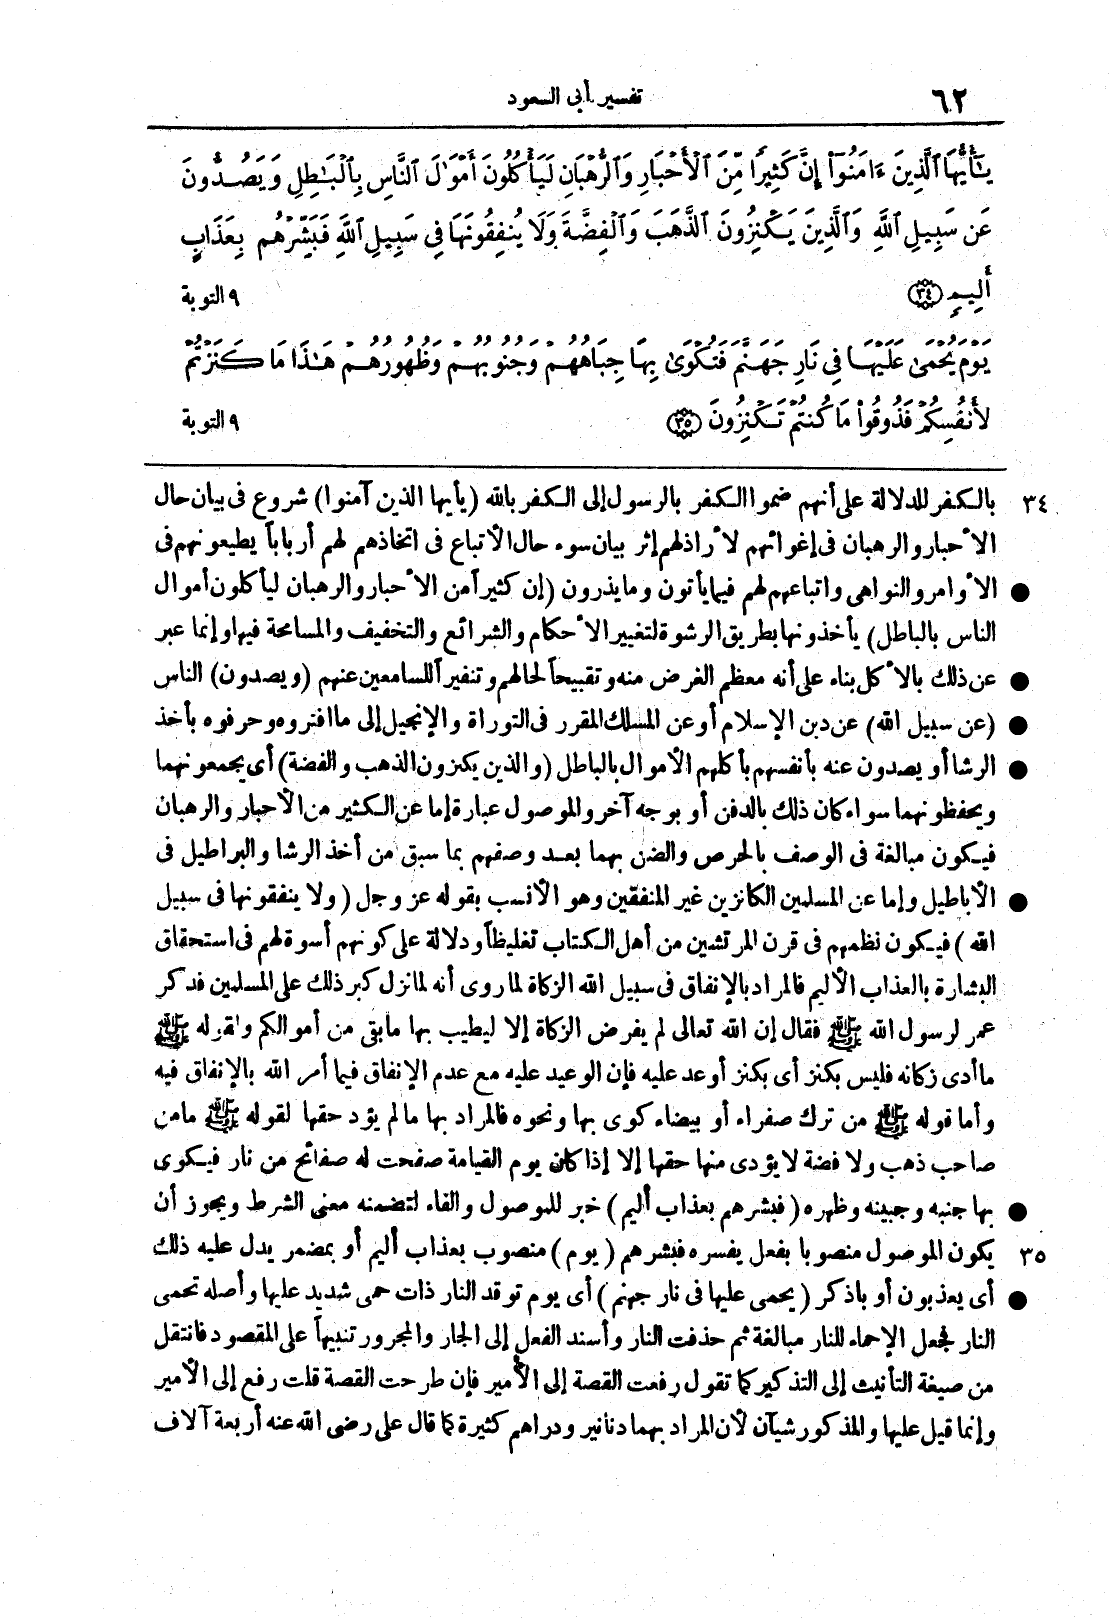 ٦٢ تفسير أبى السعود
يَـٰٓأَيُّهَا ٱلَّذِينَ ءَامَنُوٓا۟ إِنَّ كَثِيرًا مِّنَ ٱلْأَحْبَارِ وَٱلرُّهْبَانِ لَيَأْكُلُونَ أَمْوَٰلَ ٱلنَّاسِ بِٱلْبَـٰطِلِ وَيَصُدُّونَ
عَن سَبِيلِ ٱللَّهِ وَٱلَّذِينَ يَكْنِزُونَ ٱلذَّهَبَ وَٱلْفِضَّةَ وَلَا يُنفِقُونَهَا فِى سَبِيلِ ٱللَّهِ فَبَشِّرْهُم بِعَذَابٍ
أَلِيمٍ ٣٤ ٩ التوبة
يَوْمَ يُحْمَىٰ عَلَيْهَا فِى نَارِ جَهَنَّمَ فَتُكْوَىٰ بِهَا جِبَاهُهُمْ وَجُنُوبُهُمْ وَظُهُورُهُمْ هَـٰذَا مَا كَنَزْتُمْ
لِأَنفُسِكُمْ فَذُوقُوا۟ مَا كُنتُمْ تَكْنِزُونَ ٣٥ ٩ التوبة
٣٤ بالكفر للدلالة على أنهم ضموا الكفر بالرسول إلى الكفر بالله (يأيها الذين آمنوا) شروع فى بيان حال
الأحبار والرهبان فى إغوائهم لأراذلهم إثر بيان سوء حال الأتباع فى اتخاذهم لهم أرباباً يطيعونهم فى
● الأوامر والنواهى واتباعهم لهم فيما يأتون وما يذرون (إن كثيراً من الأحبار والرهبان ليأكلون أموال
الناس بالباطل) يأخذونها بطريق الرشوة لتغيير الأحكام والشرائع والتخفيف والمسامحة فيها وإنما عبر
● عن ذلك بالأكل بناء على أنه معظم الغرض منه وتقبيحاً لحالهم وتنفيراً للسامعين عنهم (ويصدون) الناس
● (عن سبيل الله) عن دين الإسلام أو عن المسلك المقرر فى التوراة والإنجيل إلى ما افتروه وحرفوه بأخذ
● الرشا أو يصدون عنه بأنفسهم بأكلهم الأموال بالباطل (والذين يكنزون الذهب والفضة) أى يجمعونهما
ويحفظونهما سواء كان ذلك بالدفن أو بوجه آخر والموصول عبارة إما عن الكثير من الأحبار والرهبان
فيكون مبالغة فى الوصف بالحرص والضن بهما بعد وصفهم بما سبق من أخذ الرشا والبراطيل فى
● الأباطيل وإما عن المسلمين الكانزين غير المنفقين وهو الأنسب بقوله عز وجل (ولا ينفقونها فى سبيل
الله) فيكون نظمهم فى قرن المرتشين من أهل الكتاب تغليظاً ودلالة على كونهم أسوة لهم فى استحقاق
البشارة بالعذاب الأليم فالمراد بالإنفاق فى سبيل الله الزكاة لما روى أنه لما نزل كبر ذلك على المسلمين فذكر
عمر لرسول الله ﷺ فقال إن الله تعالى لم يفرض الزكاة إلا ليطيب بها ما بقى من أموالكم ولقوله ﷺ
ما أدى زكاته فليس بكنز أى بكنز أوعد عليه فإن الوعيد عليه مع عدم الإنفاق فيما أمر الله بالإنفاق فيه
وأما قوله ﷺ من ترك صفراء أو بيضاء كوى بها ونحوه فالمراد بها ما لم يؤد حقها لقوله ﷺ ما من
صاحب ذهب ولا فضة لا يؤدى منها حقها إلا إذا كان يوم القيامة صفحت له صفائح من نار فيكوى
● بها جنبه وجبينه وظهره (فبشرهم بعذاب أليم) خبر للموصول والفاء لتضمنه معنى الشرط ويجوز أن
٣٥ يكون الموصول منصوبا بفعل يفسره فبشرهم (يوم) منصوب بعذاب أليم أو بمضمر يدل عليه ذلك
● أى يعذبون أو باذكر (يحمى عليها فى نار جهنم) أى يوم توقد النار ذات حمى شديد عليها وأصله تحمى
النار فجعل الإحماء للنار مبالغة ثم حذفت النار وأسند الفعل إلى الجار والمجرور تنبيهاً على المقصود فانتقل
من صيغة التأنيث إلى التذكير كما تقول رفعت القصة إلى الأمير فإن طرحت القصة قلت رفع إلى الأمير
وإنما قيل عليها والمذكور شيآن لأن المراد بهما دنانير ودراهم كثيرة كما قال على رضى الله عنه أربعة آلاف